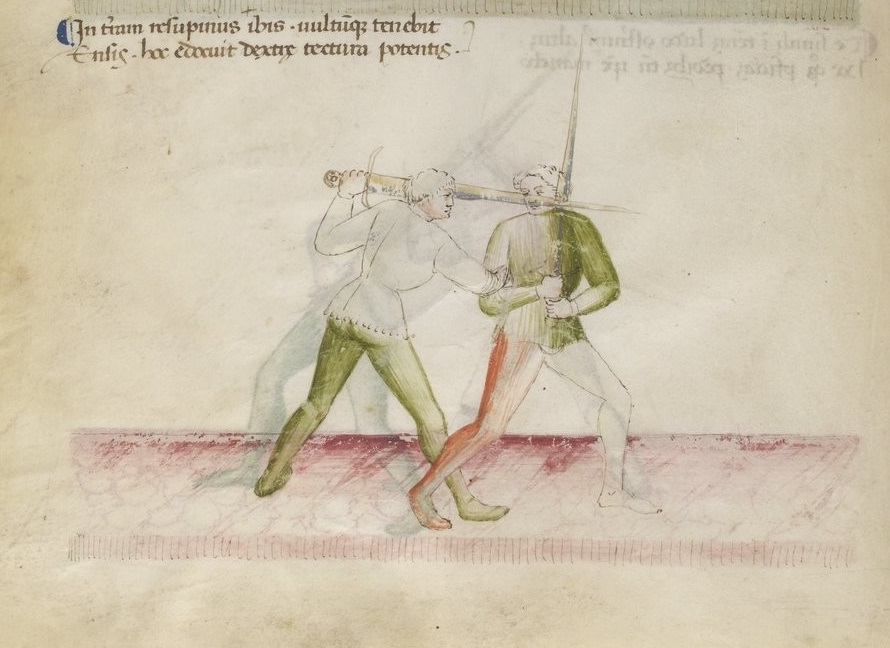 In t̄ram resupinus ibis . uultūqꝫ tenebit
Ensis . hoc edocuit dextre tectura potentis .